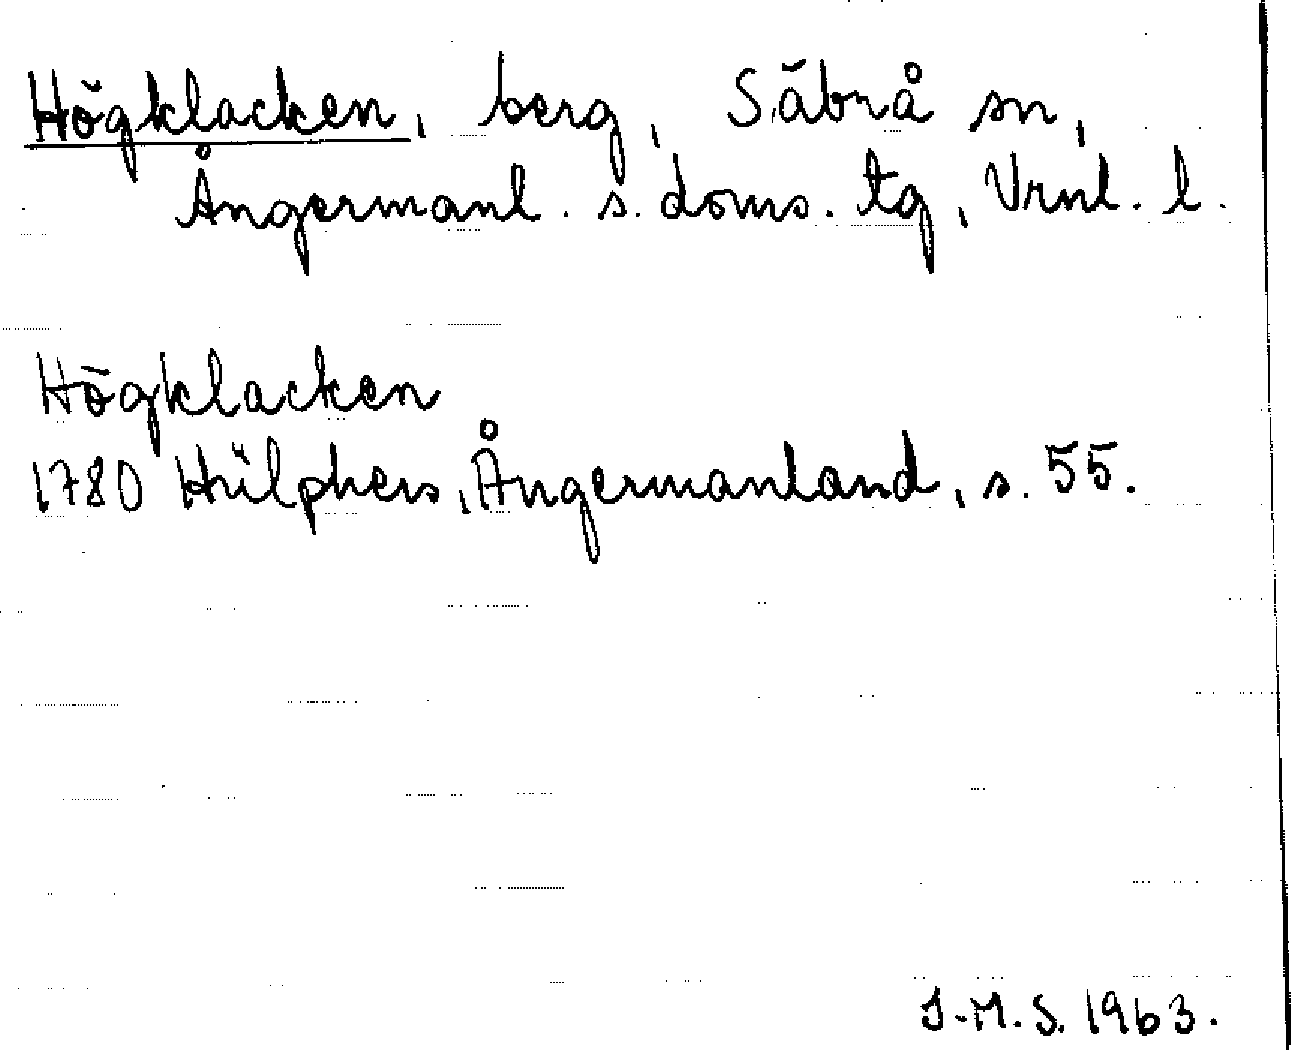 Högklacken, berg, Säbrå sn,
Ångermanl. s. doms. tg, Vrnl. l.
Högklacken
1780 Hülphers, Ångermanland, s. 55.
J.M.S. 1963.